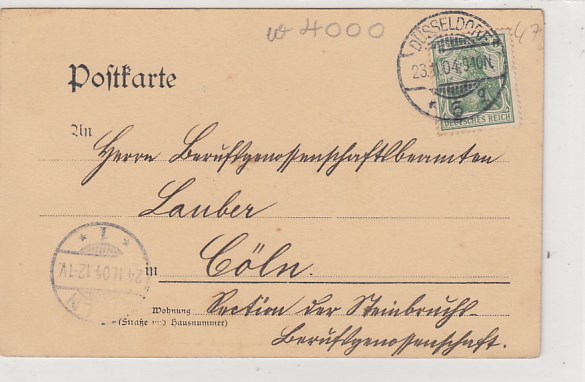 w 4000
47
DÜSSELDORF
23.11.04.9-10N.
* 6 q
DEUTSCHES REICH
Postkarte
An
Herrn Berufsgenossenschaftsbeamten
Lauber
in Cöln.
* 1 *
24.11.04.12-1V.
LN
Wohnung Section der Steinbruchs-
(Straße und Hausnummer)
Berufsgenossenschaft.